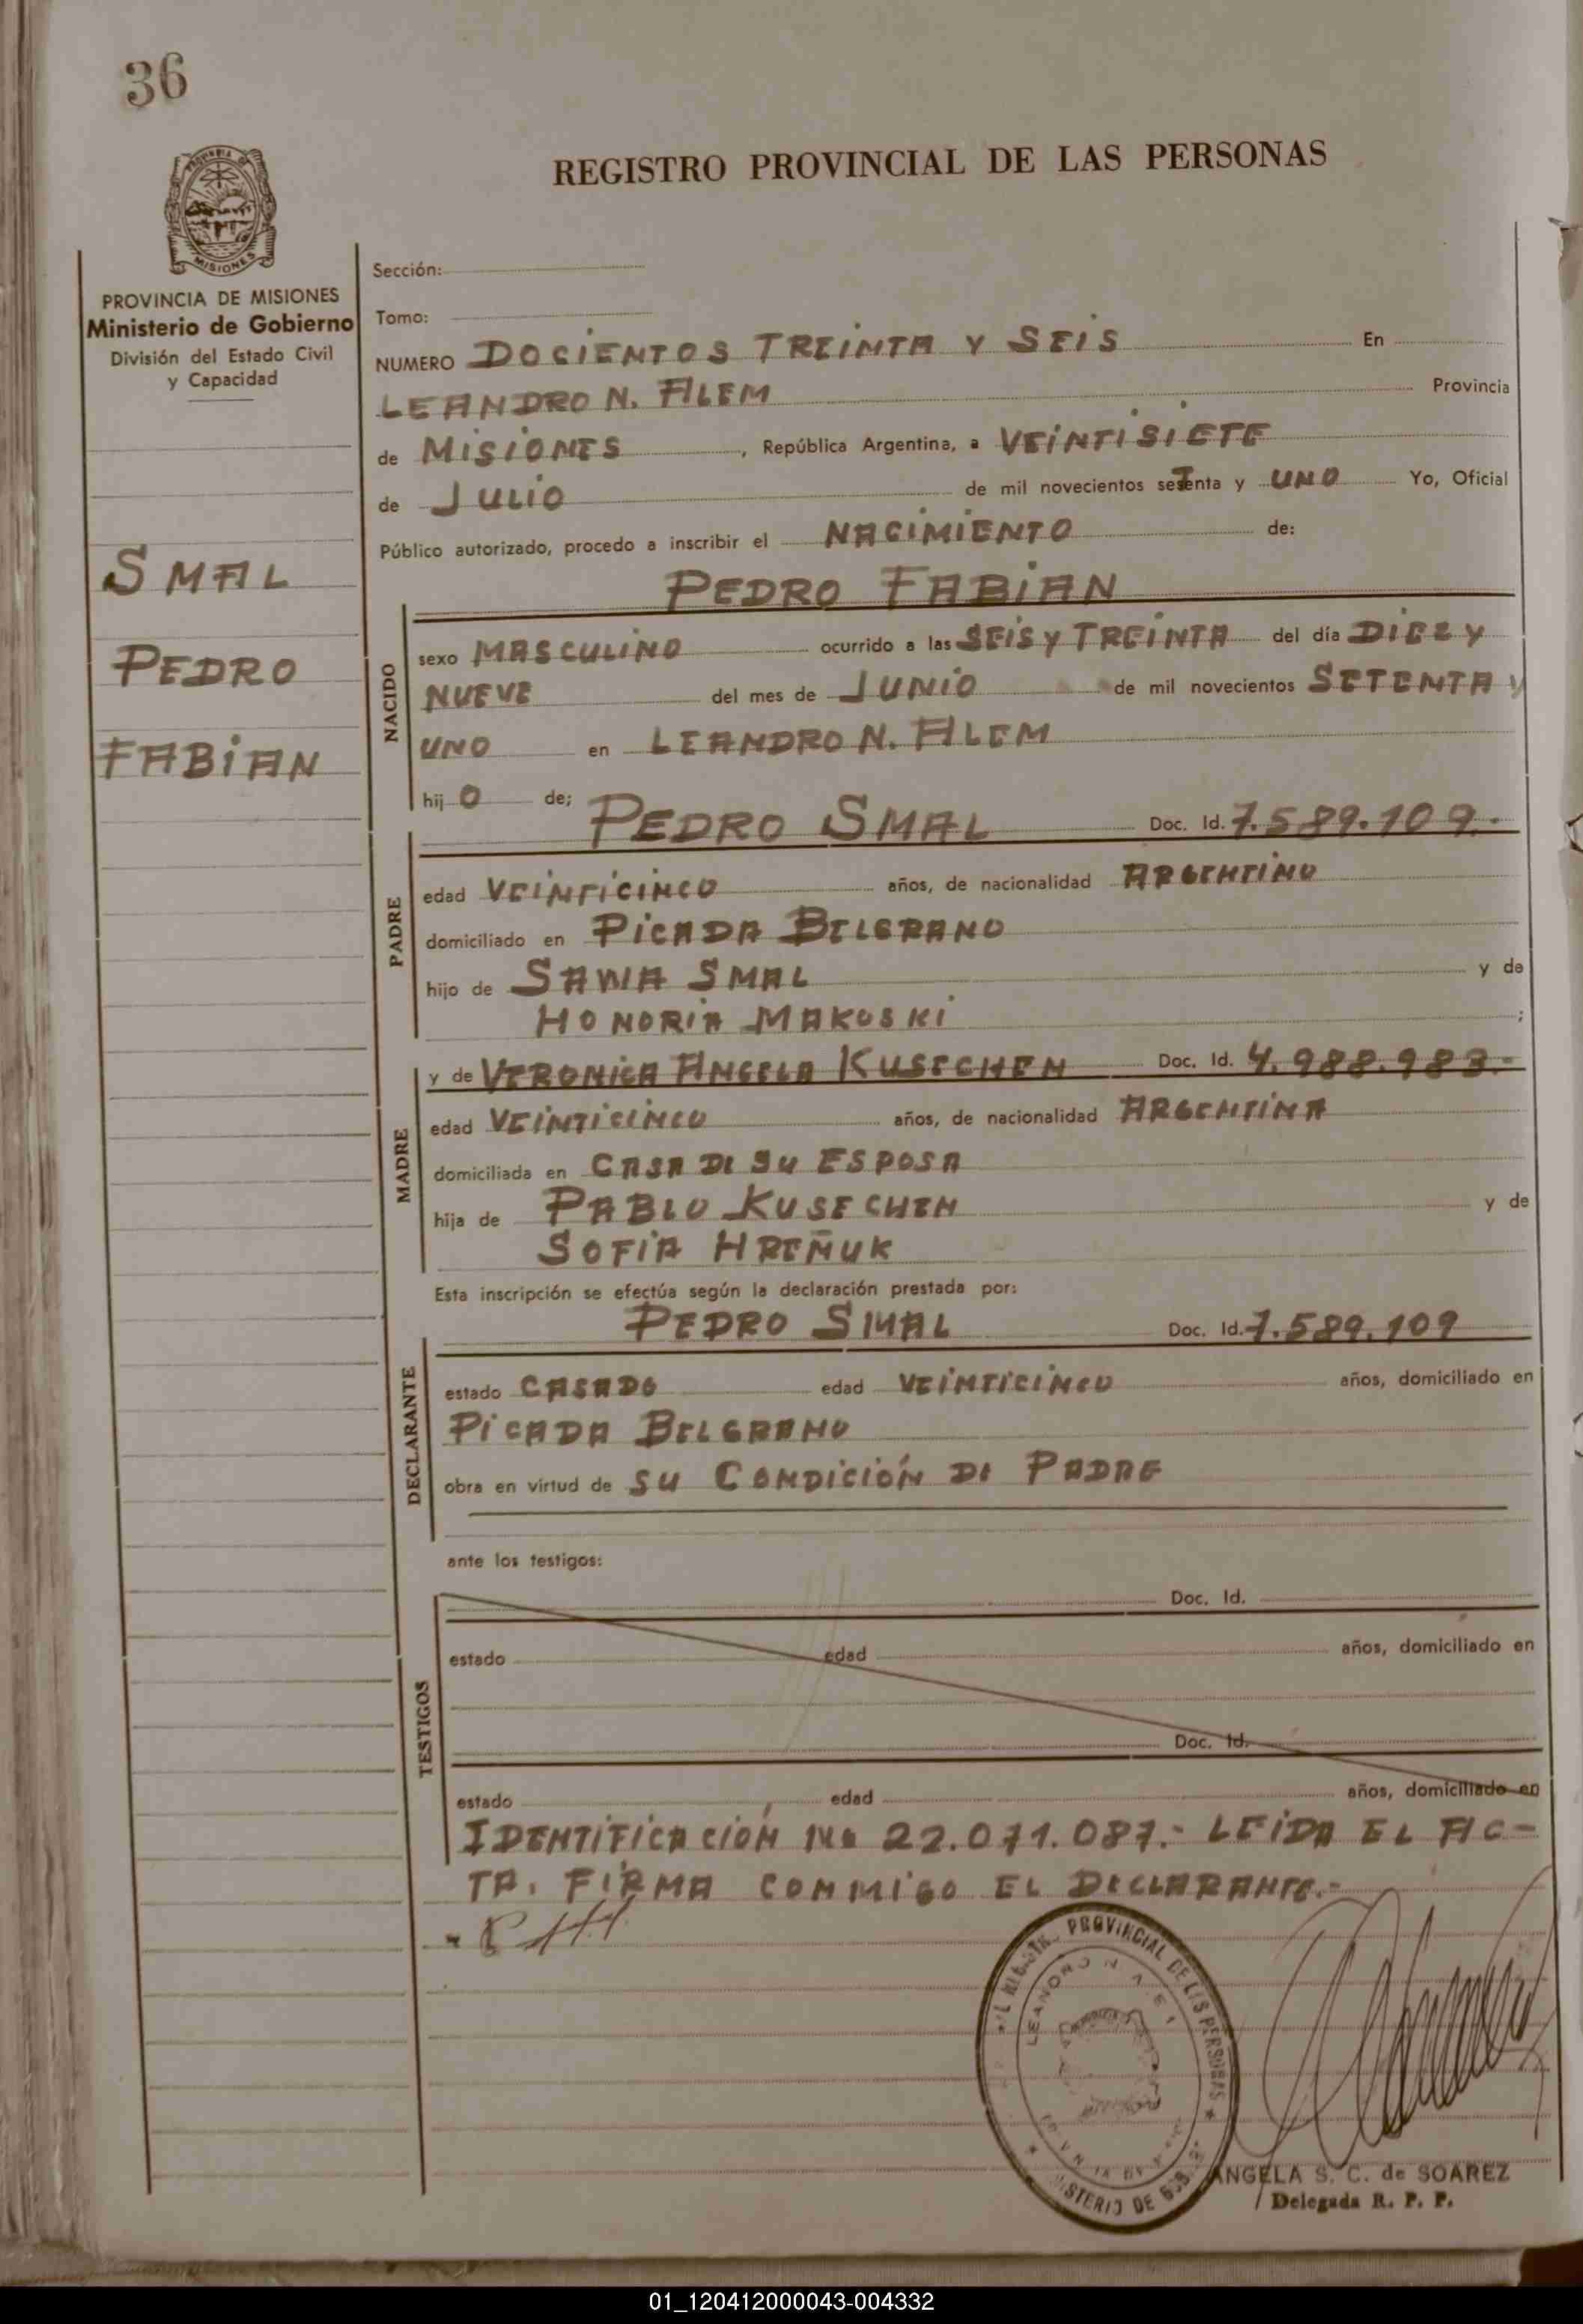 36
PROVINCIA DE
MISIONES
PROVINCIA DE MISIONES
Ministerio de Gobierno
División del Estado Civil
y Capacidad
SMAL
PEDRO
FABIAN
REGISTRO PROVINCIAL DE LAS PERSONAS
Sección:
Tomo:
NUMERO DOCIENTOS TREINTA Y SEIS En
LEANDRO N. ALEM Provincia
de MISIONES, República Argentina, a VEINTISIETE
de JULIO de mil novecientos setenta y UNO Yo, Oficial
Público autorizado, procedo a inscribir el NACIMIENTO de:
PEDRO FABIAN
NACIDO
sexo MASCULINO ocurrido a las SEIS Y TREINTA del día DIEZ Y
NUEVE del mes de JUNIO de mil novecientos SETENTA Y
UNO en LEANDRO N. ALEM
hij O de;
PEDRO SMAL Doc. Id. 7.589.109.-
PADRE
edad VEINTICINCO años, de nacionalidad ARGENTINO
domiciliado en PICADA BELGRANO
hijo de SAWA SMAL y de
HONORIA MAKOSKI ;
y de VERONICA ANGELA KUSECHEN Doc. Id. 4.988.983.-
MADRE
edad VEINTICINCO años, de nacionalidad ARGENTINA
domiciliada en CASA DE SU ESPOSA
hija de PABLO KUSECHEN y de
SOFIA HREÑUK
Esta inscripción se efectúa según la declaración prestada por:
PEDRO SMAL Doc. Id. 7.589.109
DECLARANTE
estado CASADO edad VEINTICINCO años, domiciliado en
PICADA BELGRANO
obra en virtud de SU CONDICIÓN DE PADRE
ante los testigos:
Doc. Id.
TESTIGOS
estado edad años, domiciliado en
Doc. Id.
estado edad años, domiciliado en
IDENTIFICACIÓN No 22.071.087.- LEIDA EL AC-
TA. FIRMA CONMIGO EL DECLARANTE.-
PROVINCIAL DE LAS PERSONAS
LEANDRO N. ALEM
MINISTERIO DE GOB.
ANGELA S. C. de SOAREZ
Delegada R. P. P.
01_120412000043-004332